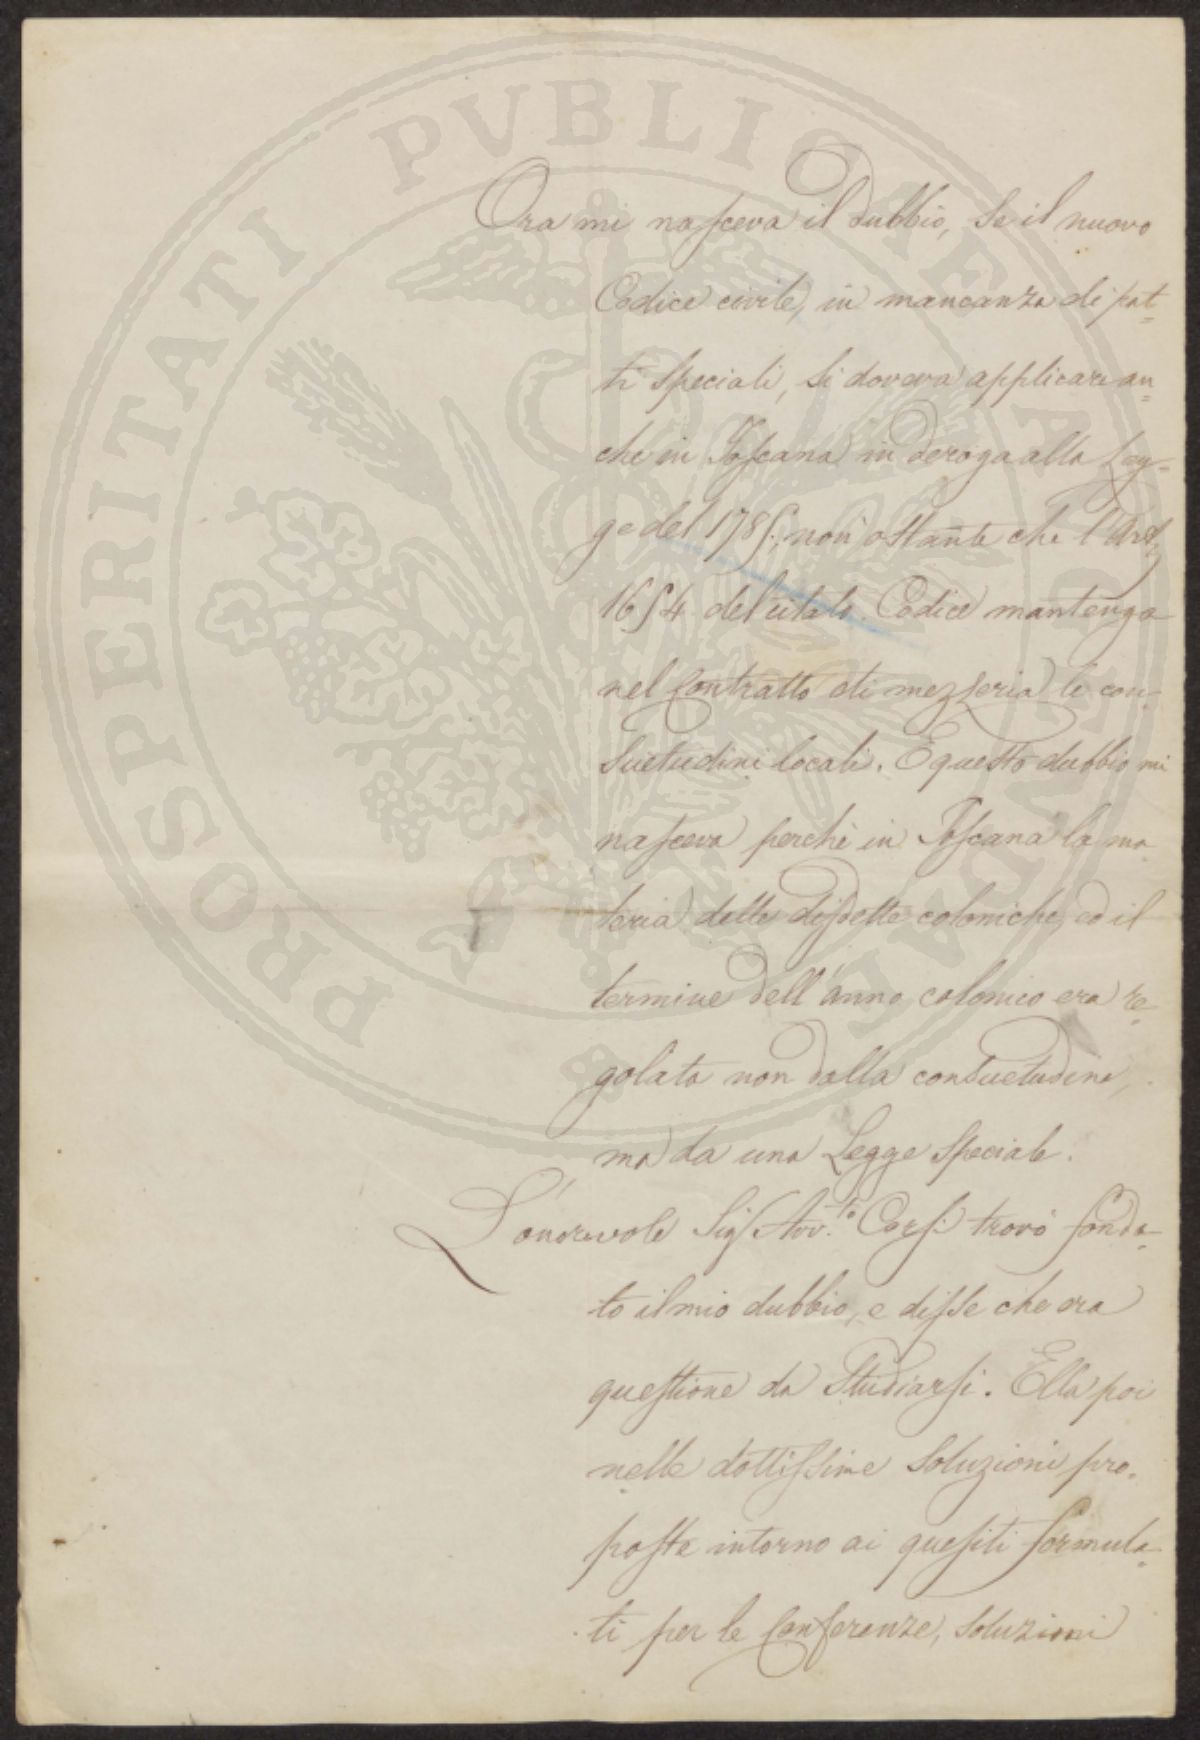 PROSPERITATI PVBLICAE AVGENDAE
Ora mi nasceva il dubbio, se il nuovo
Codice civile, in mancanza di pat=
ti speciali, si doveva applicare an=
che in Toscana in deroga alla Leg=
ge del 1785, non ostante che l'Art.
1654 del citato Codice mantenga
nel Contratto di mezzeria le con-
suetudini locali. E questo dubbio mi
nasceva perchè in Toscana la ma
teria delle disdette coloniche, ed il
termine dell'anno colonico era re=
golata non dalla consuetudine,
ma da una Legge speciale.
L'onorevole Sig. Avv.to Corsi trovò fonda=
to il mio dubbio, e disse che era
questione da studiarsi. Ella poi
nelle dottissime soluzioni pro=
poste intorno ai quesiti formula=
ti per le Conferenze, soluzioni